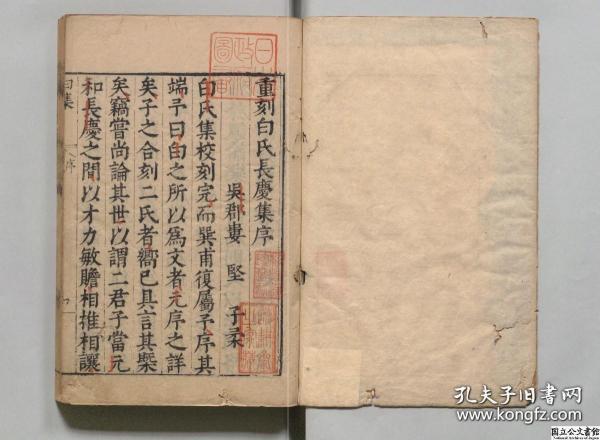 重刻白氏長慶集序
吳郡婁 堅 子柔
白氏集校刻完而巽甫復屬予序其
端予曰白之所以為文者元序之詳
矣予之合刻二氏者嚮已具言其槩
矣竊嘗尚論其世以謂二君子當元
和長慶之間以才力敏贍相推相讓
白集
序
孔夫子旧书网
www.kongfz.com
国立公文書館
National Archives of Japan